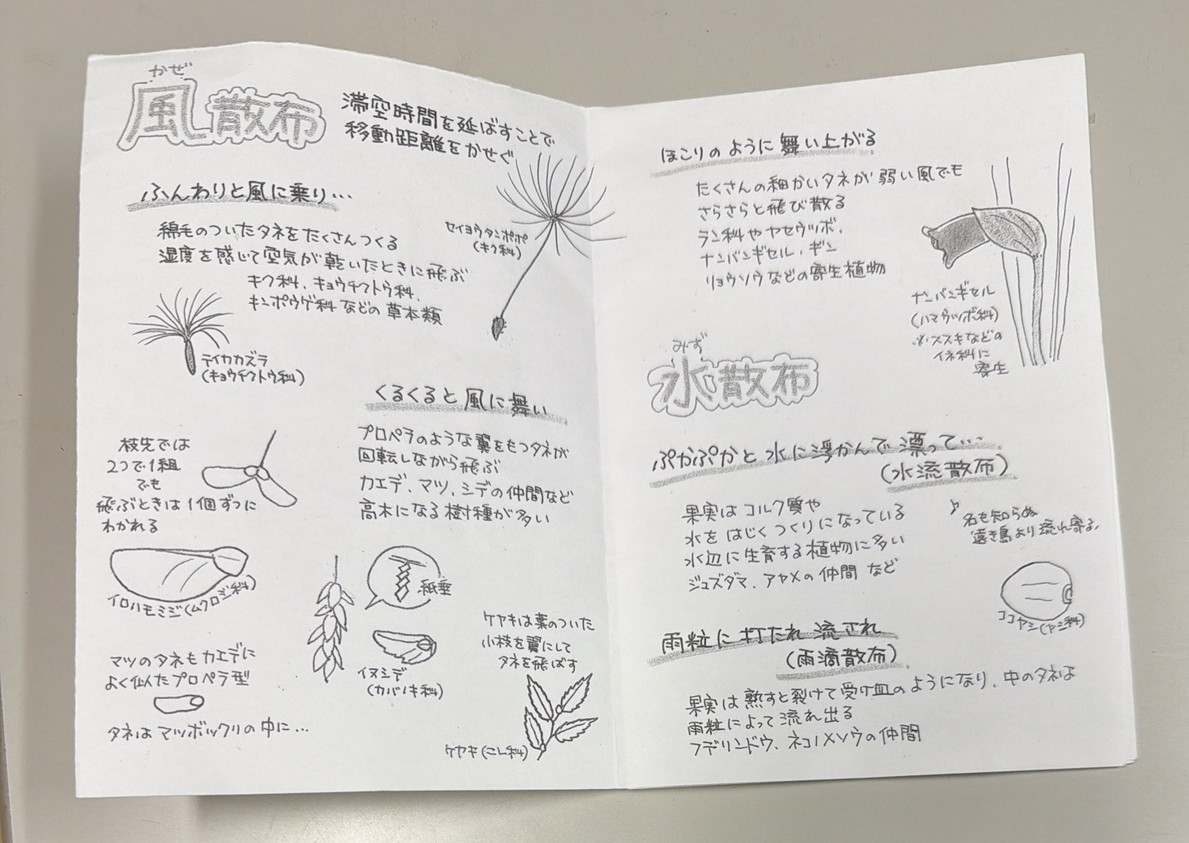 かぜ
風散布
滞空時間を延ばすことで
移動距離をかせぐ
ふんわりと風に乗り…
綿毛のついたタネをたくさんつくる
湿度を感じて空気が乾いたときに飛ぶ
キク科、キョウチクトウ科、
キンポウゲ科などの草本類
セイヨウタンポポ
(キク科)
テイカカズラ
(キョウチクトウ科)
くるくると風に舞い
プロペラのような翼をもつタネが
回転しながら飛ぶ
カエデ、マツ、シデの仲間など
高木になる樹種が多い
枝先では
2つで1組
でも
飛ぶときは1個ずつに
わかれる
イロハモミジ(ムクロジ科)
マツのタネもカエデに
よく似たプロペラ型
タネはマツボックリの中に…
紙垂
イヌシデ
(カバノキ科)
ケヤキは葉のついた
小枝を翼にして
タネを飛ばす
ケヤキ(ニレ科)
ほこりのように舞い上がる
たくさんの細かいタネが弱い風でも
さらさらと飛び散る
ラン科やヤセウツボ、
ナンバンギセル・ギン
リョウソウなどの寄生植物
ナンバンギセル
(ハマウツボ科)
※ススキなどの
イネ科に
寄生
みず
水散布
ぷかぷかと水に浮かんで漂って…
(水流散布)
果実はコルク質や
水をはじくつくりになっている
水辺に生育する植物に多い
ジュズダマ、アヤメの仲間など
♪名も知らぬ
遠き島より流れ寄る、
ココヤシ(ヤシ科)
雨粒に打たれ流され
(雨滴散布)
果実は熟すと裂けて受け皿のようになり、中のタネは
雨粒によって流れ出る
フデリンドウ、ネコノメソウの仲間